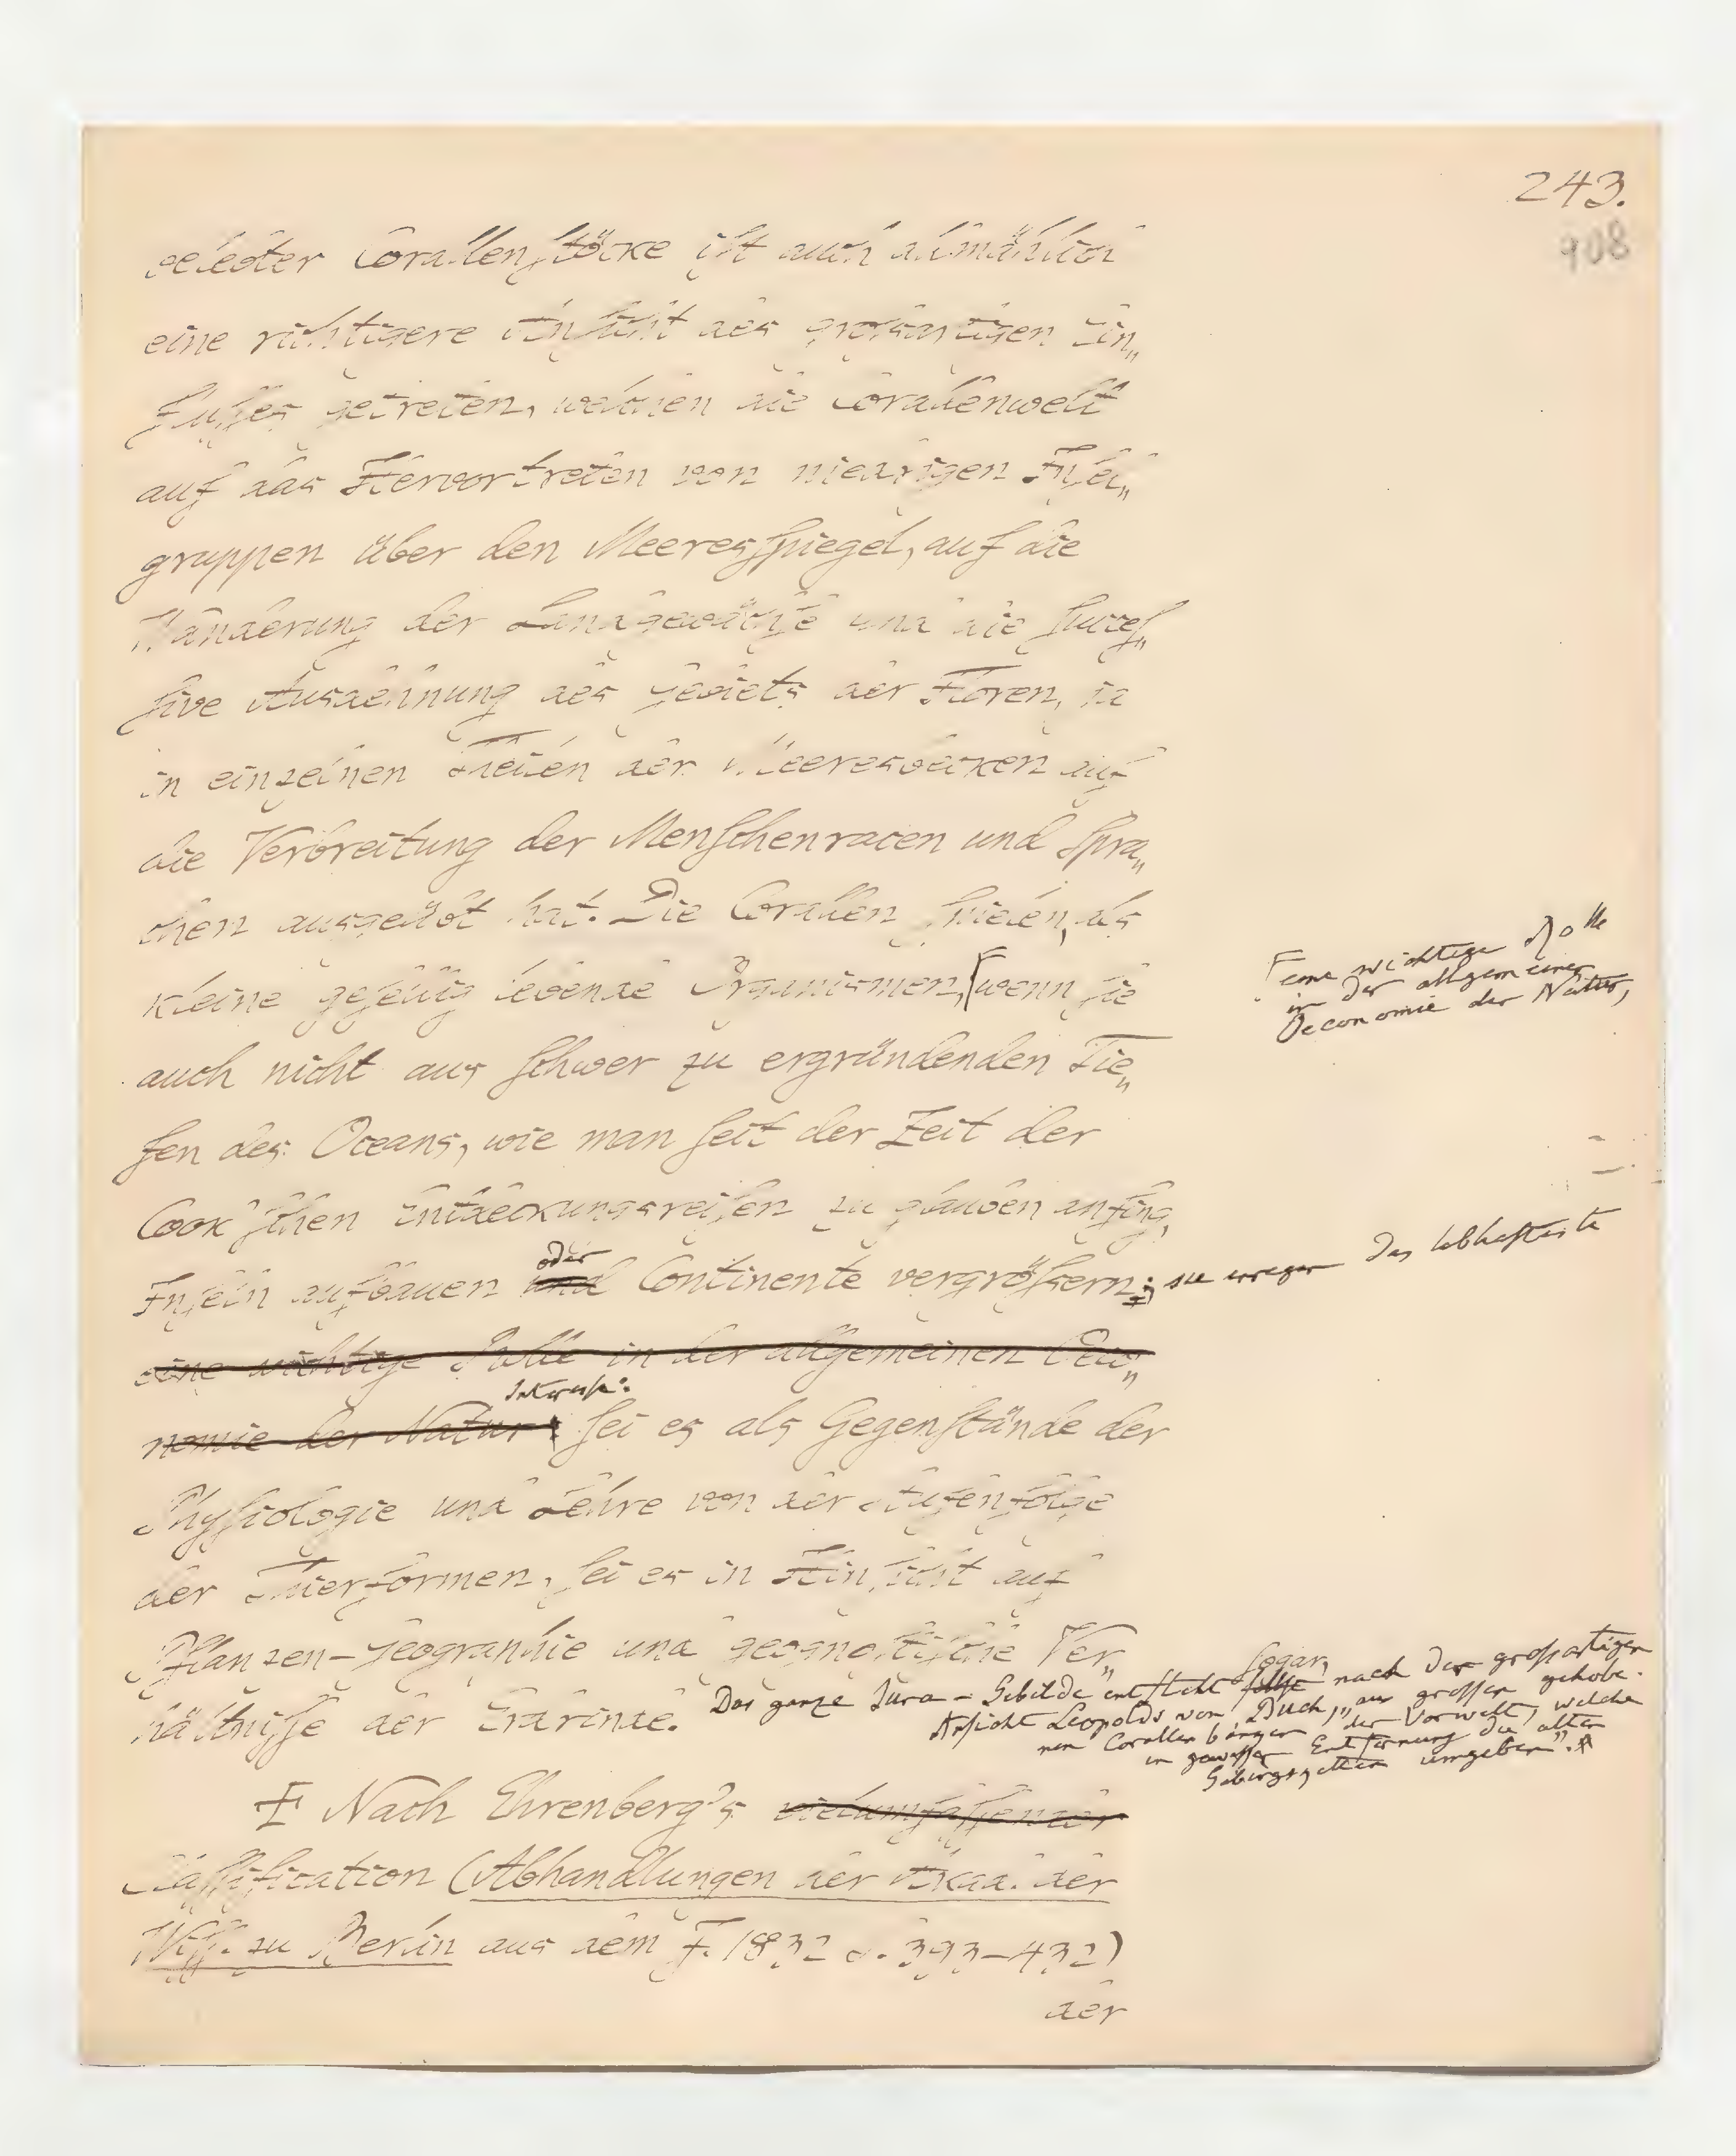 243.
908
belebter Corallenstöcke ist auch allmählich
eine richtigere Ansicht des großartigen Ein„
flusses getreten, welchen die Corallenwelt
auf das Hervortreten von niedrigen Insel„
gruppen über den Meeresspiegel, auf die
Wanderung der Landgewächse und die succes„
sive Ausdehnung des Gebiets der Floren, ja
in einzelnen Theilen der Meeresbecken auf
die Verbreitung der Menschenracen und Spra„
chen ausgeübt hat. Die Corallen spielen, als
kleine gesellig lebende Organismen, wenn sie
eine wichtige Rolle
in der allgemeinen
Oeconomie der Natur,
auch nicht aus schwer zu ergründenden Tie„
fen des Oceans, wie man seit der Zeit der
Cook'schen Entdeckungsreisen zu glauben anfing,
oder
Inseln aufbauen und Continente vergrößern; sie erregen das lebhafteste
eine wichtige Rolle in der allgemeinen Oeco„
Interesse:
nomie der Natur: sei es als Gegenstände der
Physiologie und Lehre von der Stufenfolge
der Thierformen, sei es in Hinsicht auf
Pflanzen-Geographie und geognostische Ver„
hältnisse der Erdrinde. Das ganze Jura-Gebilde entsteht sogar nach der großartigen
Ansicht Leopolds von Buch, „aus grossen gehobe-
nen Corallen bänken der Vorwelt, welche
in gewisser Entfernung die alten
Gebirgsketten umgeben".
Nach Ehrenberg's vielumfassender
Classification (Abhandlungen der Akad. der
Wiss. zu Berlin aus dem J. 1832 S. 393–432)
der